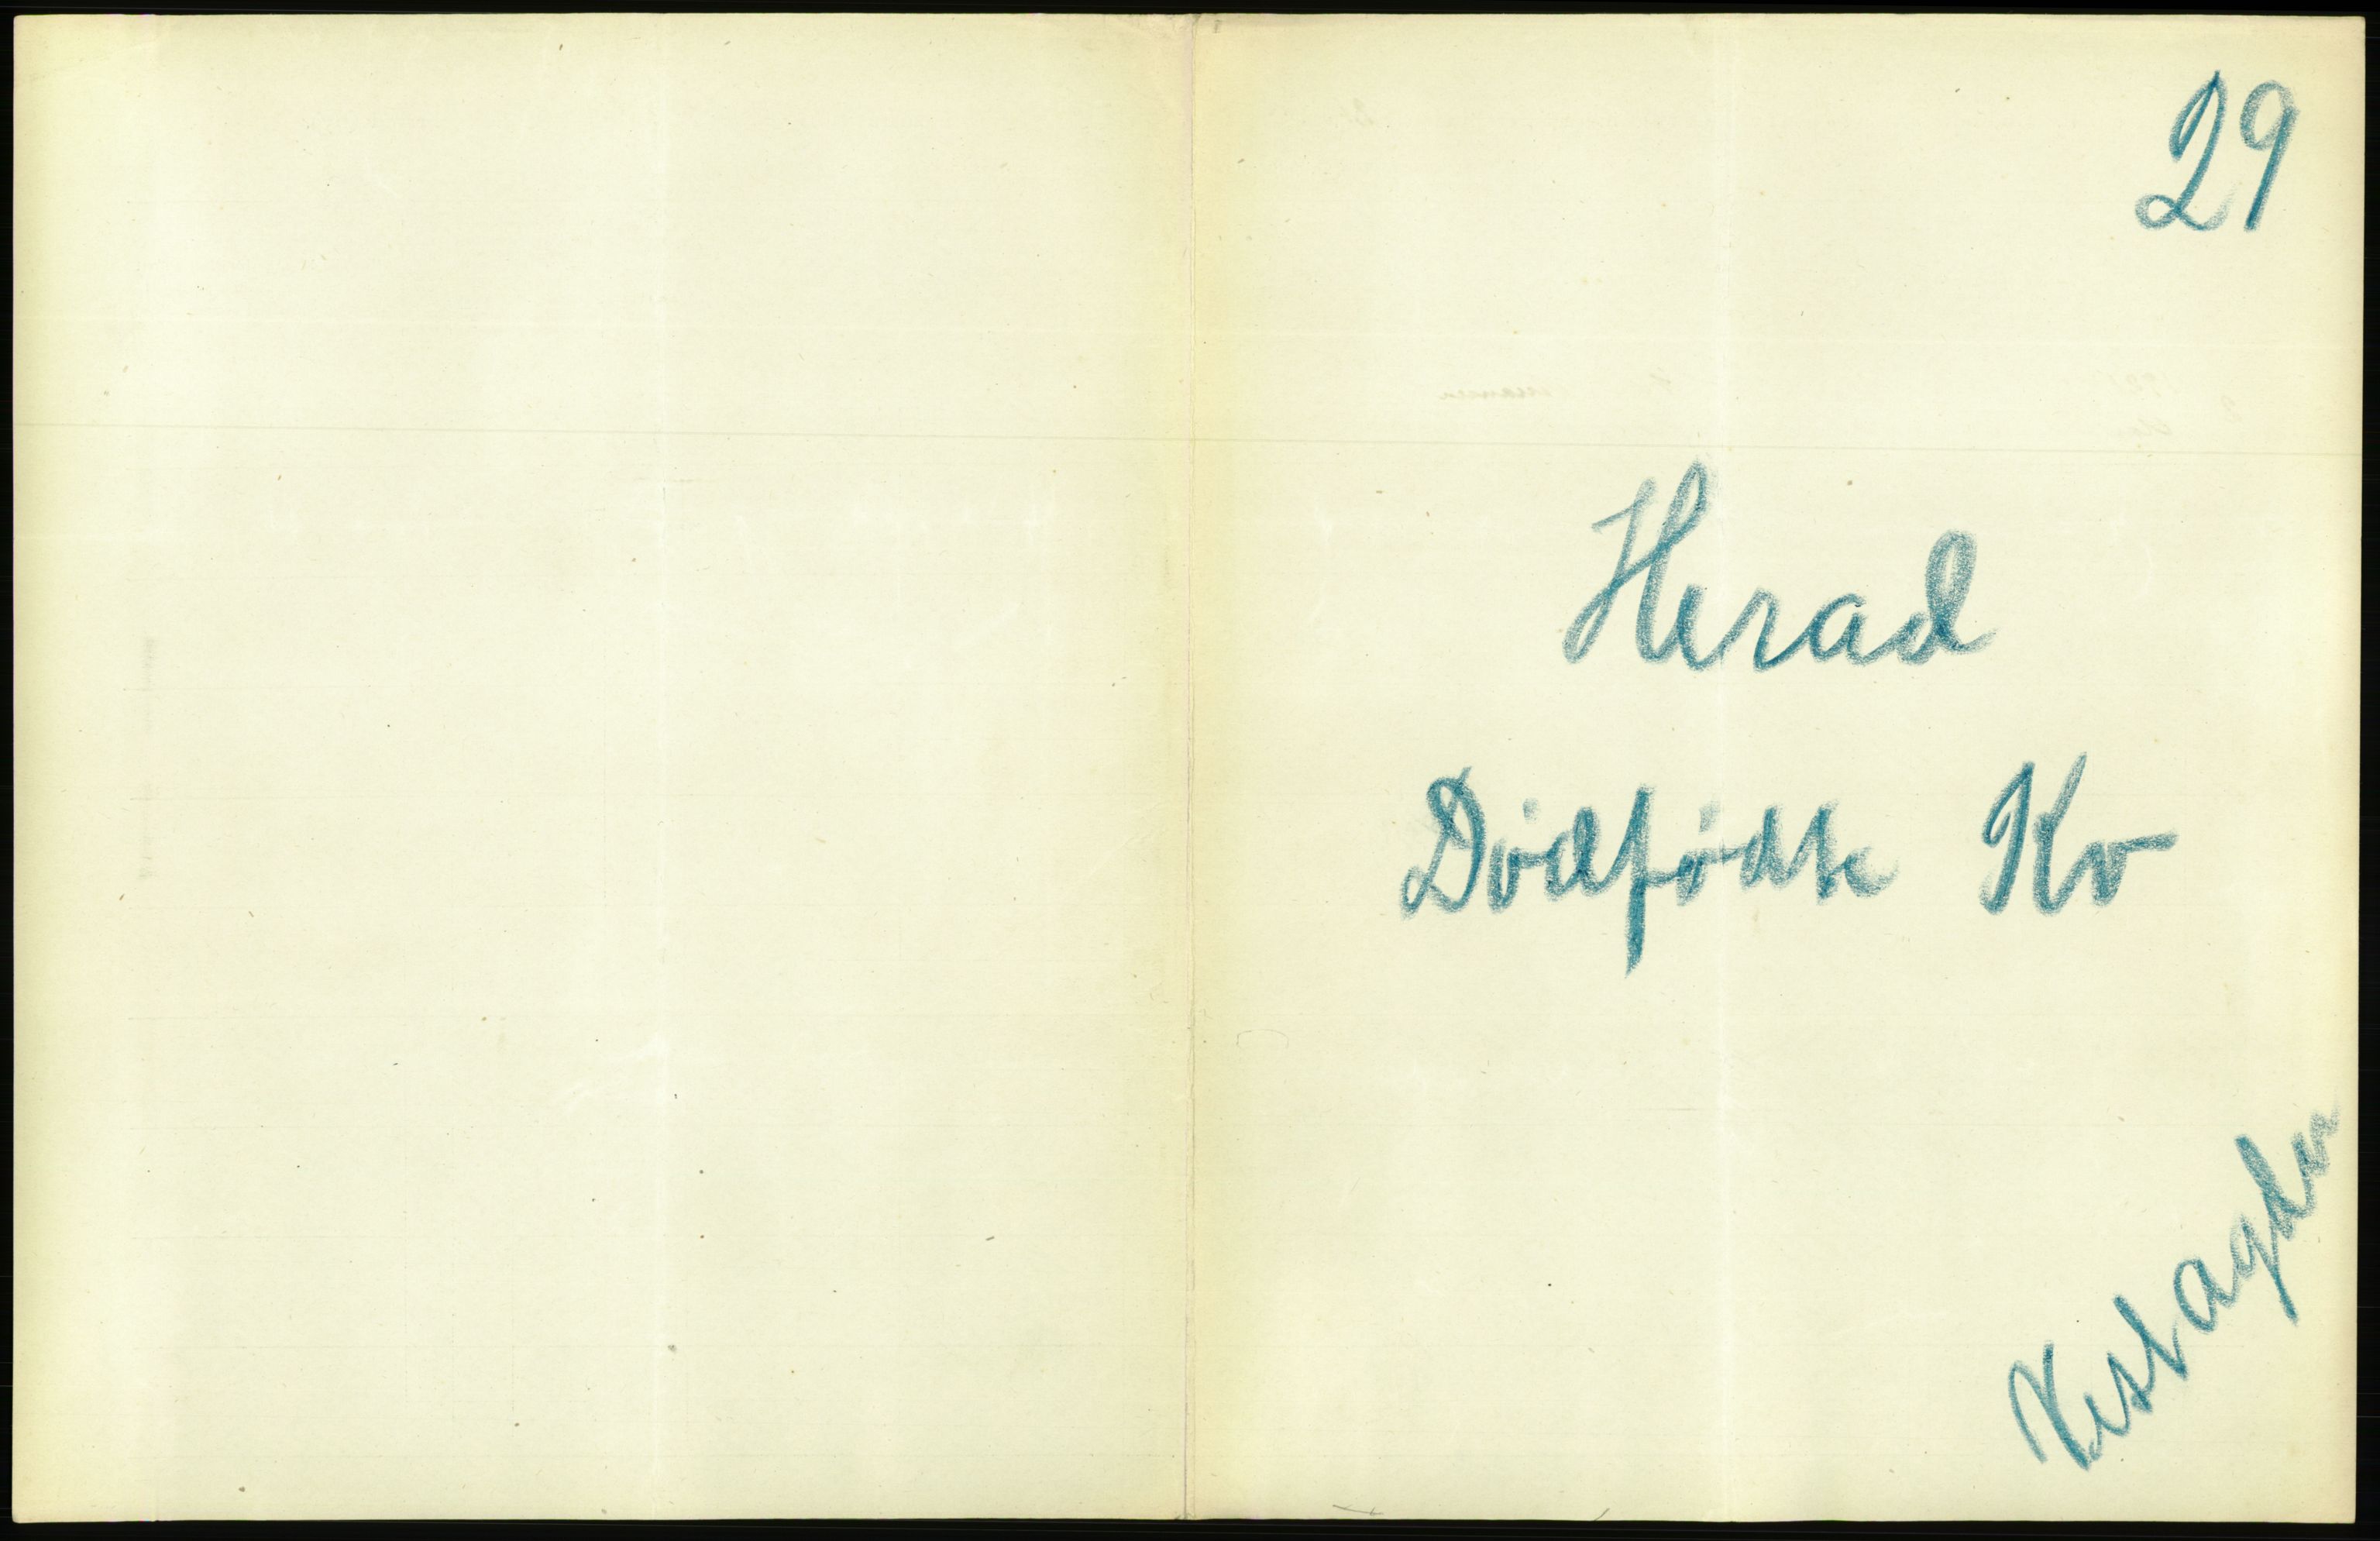 29
Herad
Dødfødte Kv
Vest agder